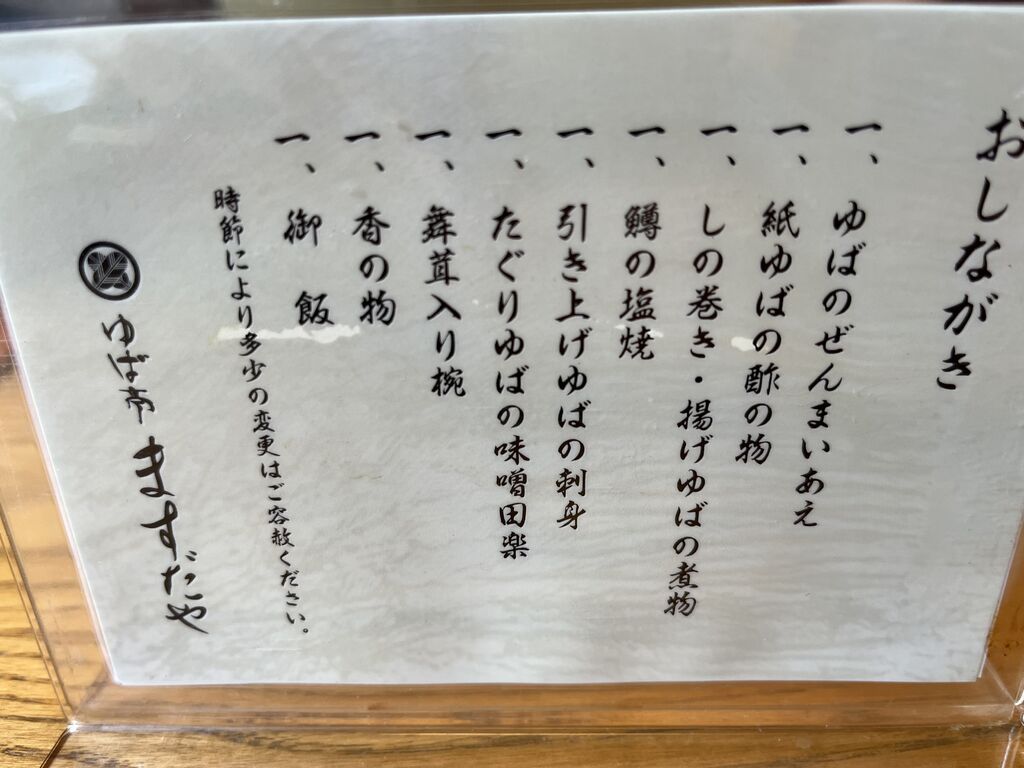 おしながき
一、ゆばのぜんまいあえ
一、紙ゆばの酢の物
一、しの巻き・揚げゆばの煮物
一、鱒の塩焼
一、引き上げゆばの刺身
一、たぐりゆばの味噌田楽
一、舞茸入り椀
一、香の物
一、御 飯
時節により多少の変更はご容赦ください。
ゆば亭 ますだや